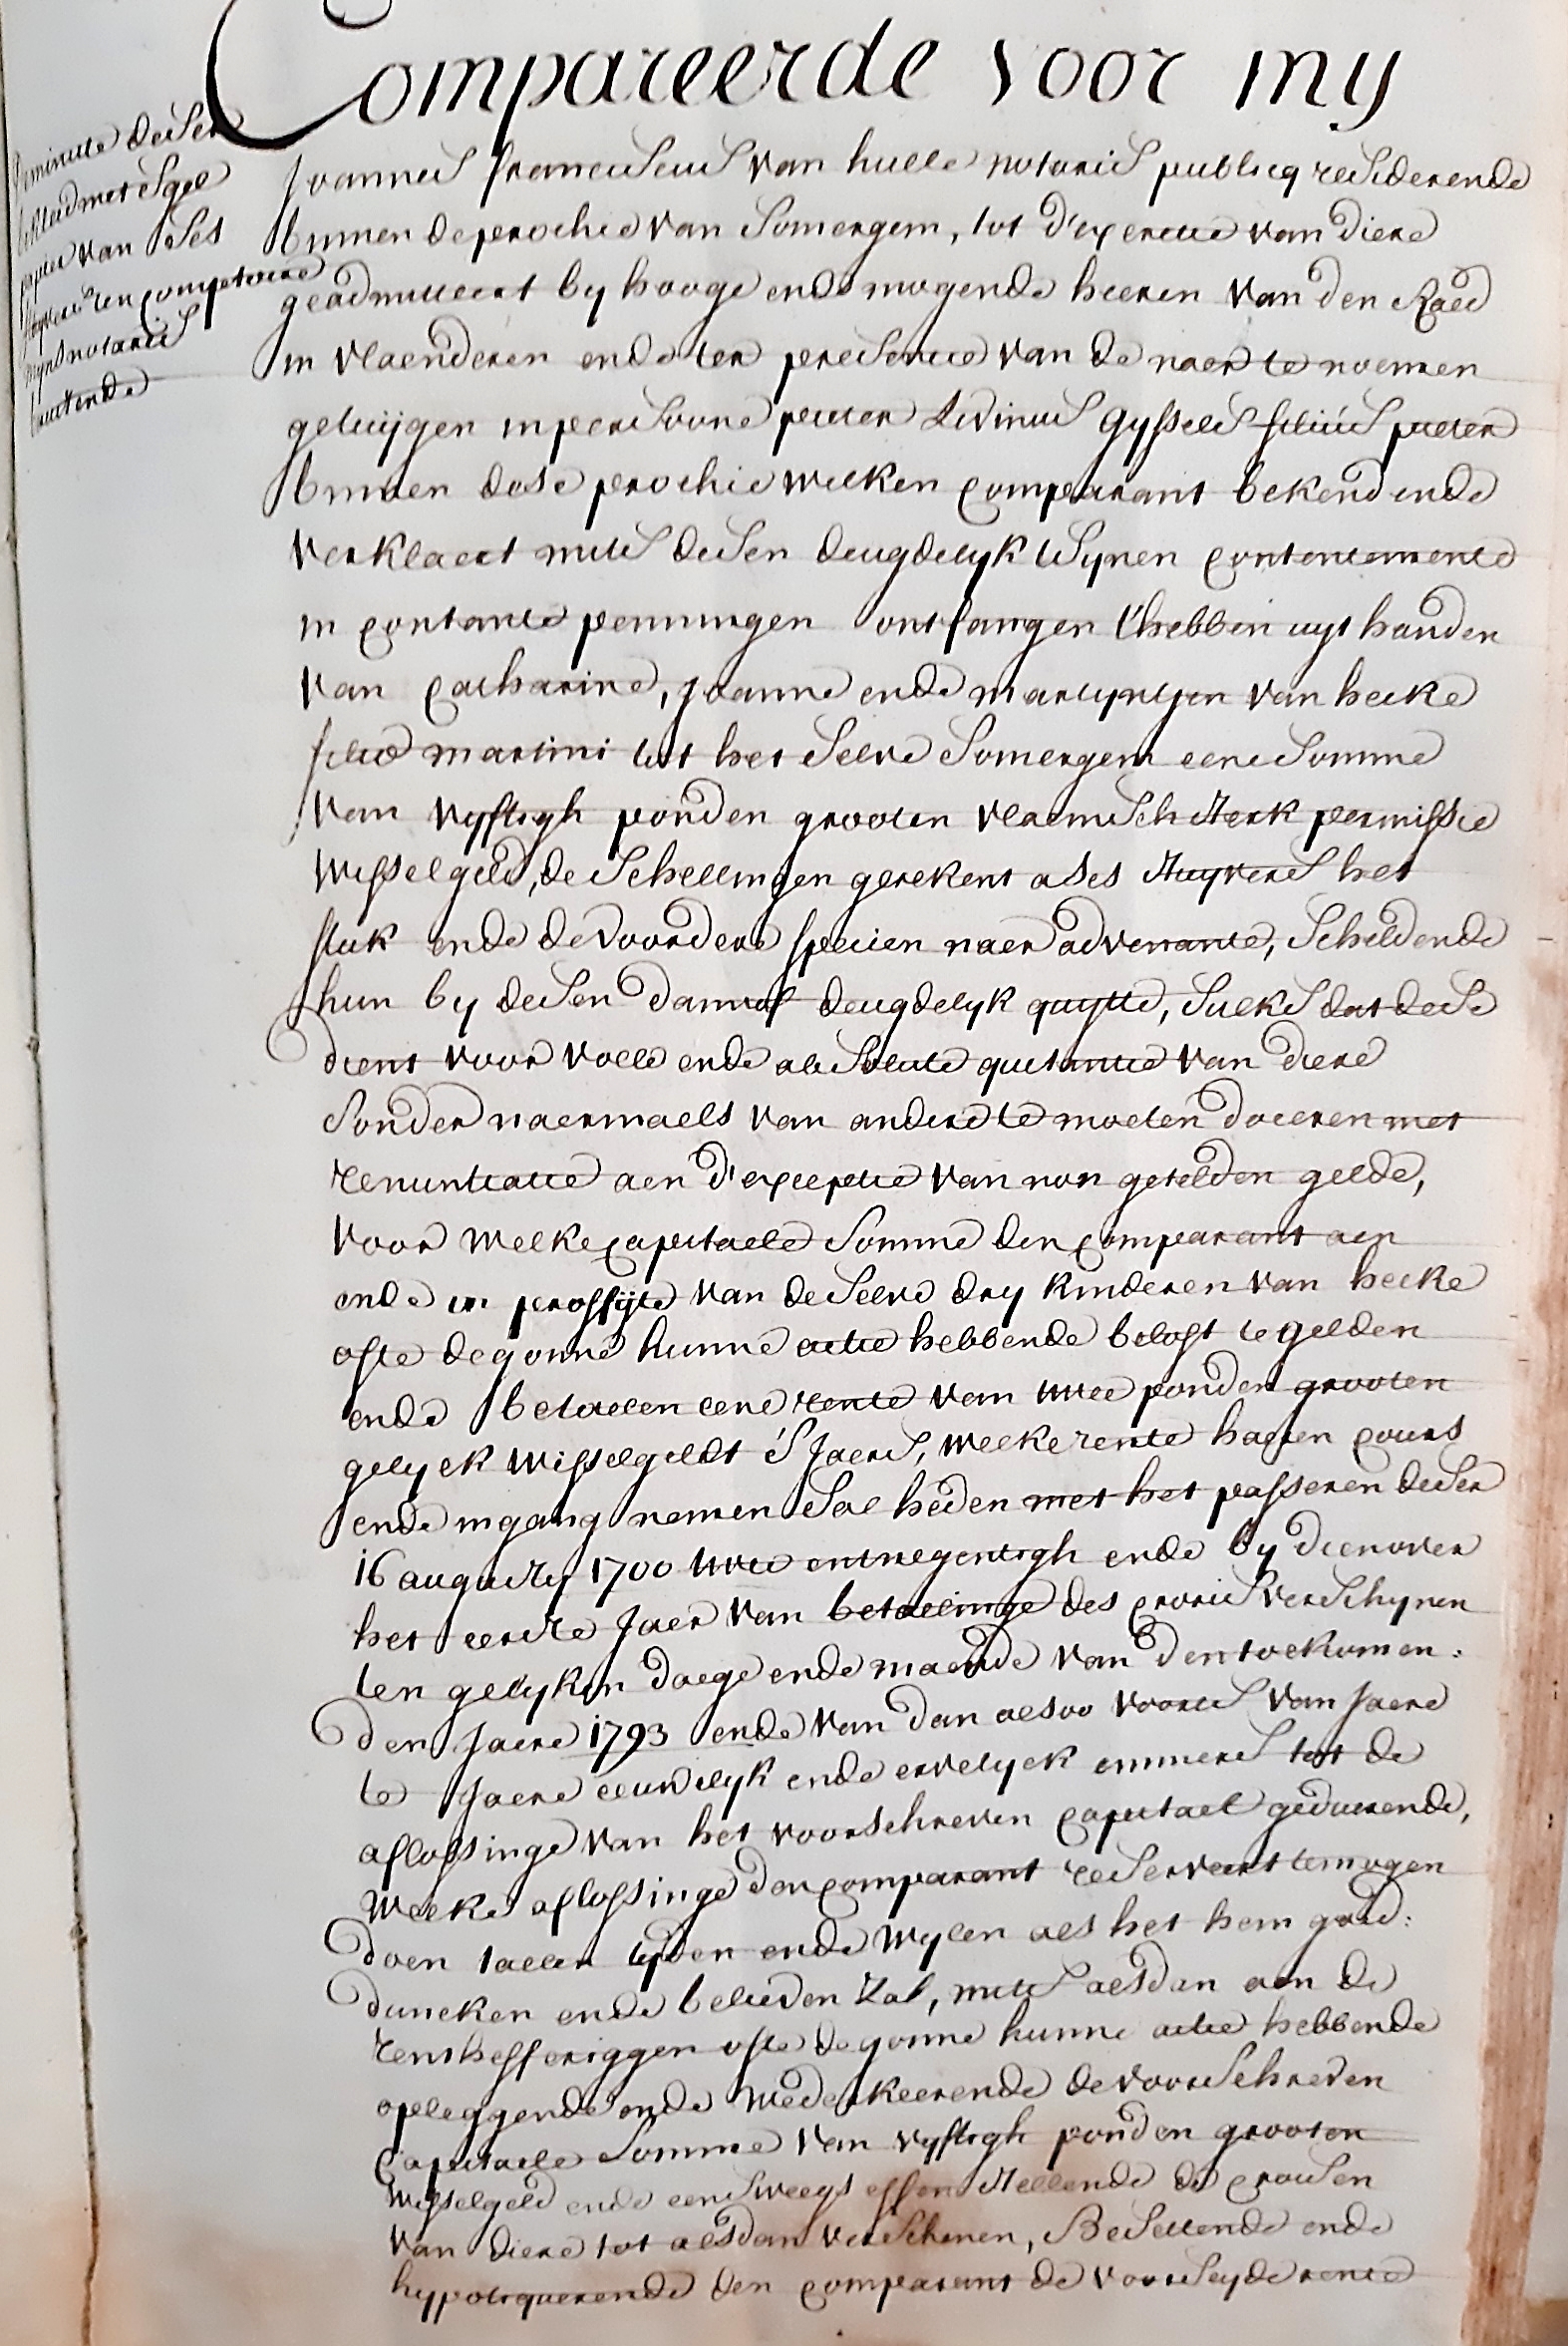 Compareerde voor my
de minute deser
beklad met segel
papier van ses
stuyvers ten comptoire
myns notaris
rustende
Joannes franciscus van hulle notaris publicq residerende
binnen de prochie van Somergem, tot d'exercitie van diere
geadmitteert by hooge ende mogende heeren van den Raed
in vlaenderen ende ter presentie van de naer te noemen
getuijgen in persoone pieter Livinus Gyssels filius pieter
binnen dese prochie welken comparant bekend ende
verklaert mits desen deugdelyk t'synen contentemente
in contante penningen ontfangen t'hebben uyt handen
van Catharine, Joanne ende martyntjen van hecke
filie martini tot het selve Somergem eene somme
van vyftigh ponden grooten vlaemsch sterk permissie
wisselgeld, de schellingen gerekent a ses stuyvers het
stuk ende de voordere specien naer advenante, scheldende
hun by desen danof deugdelyk quytte, sulks dat dese
dient voor volle ende absolute quitantie van diere
sonder naermaels van andere te moeten doceren met
renuntiatie aen d'exceptie van non getelden gelde,
voor welke capitaele somme den comparant aen
ende in proffijte van de selve dry kinderen van hecke
ofte de gonne hunne actie hebbende beloft te gelden
ende betaelen eene rente van twee ponden grooten
gelyck wisselgeldt 's Jaers, welke rente haeren cours
ende ingang nemen sal heden met het passeren deser
16 augusty 1700 twee entnegentigh ende by dien over
het eerste Jaer van betaelinge des crois verschynen
ten gelyken daege ende maende van den toekomen:
den Jaere 1793 ende van dan alsoo voorts van Jaere
te Jaere eeuwelyk ende ervelyck emmers tot de
aflossinge van het voorschreven Capitael geduerende,
welke aflossinge den comparant reserveert te mogen
doen t'allen tyden ende wylen als het hem goed:
duncken ende belieden zal, mits alsdan aen de
renthefferiggen ofte de gonne hunne actie hebbende
opleggende ende wederkeerende de voorschreven
Capitaele somme van vyftigh ponden grooten
wisselgeld ende eens weegs effen stellende de croisen
van diere tot alsdan verschenen, Besettende ende
hypotiquerende den comparant de voorseyde rente